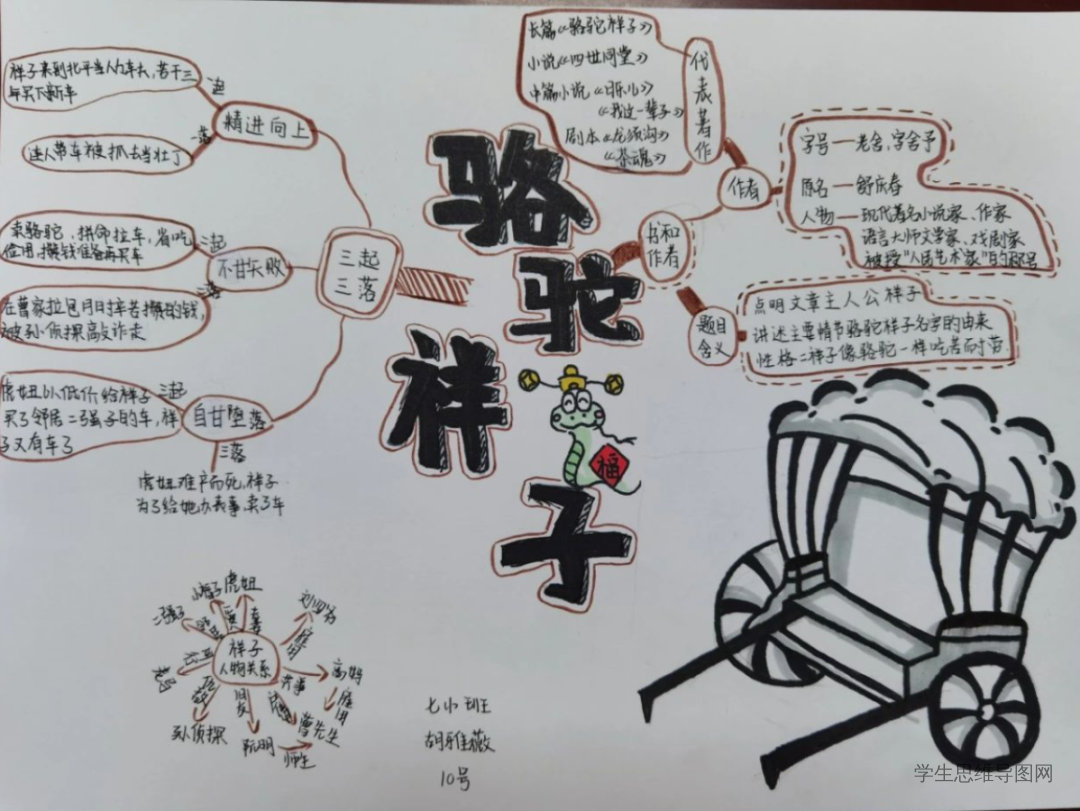 骆驼祥子
三起
三落
精进向上
一起
祥子来到北平当人力车夫，苦干三
年买下新车
一落
连人带车被抓去当壮丁
不甘失败
二起
卖骆驼，拼命拉车，省吃
俭用，攒钱准备再买车
二落
在曹家拉包月时辛苦攒的钱，
被孙侦探敲诈走
自甘堕落
三起
虎妞以低价给祥子
买了邻居二强子的车，祥
子又有车了
三落
虎妞难产而死，祥子
为了给她办丧事，卖了车
书和
作者
作者
代表著作
长篇《骆驼祥子》
小说《四世同堂》
中篇小说《月牙儿》
《我这一辈子》
剧本《龙须沟》
《茶魂》
字号—老舍，字舍予
原名—舒庆春
人物—现代著名小说家、作家
语言大师文学家、戏剧家
被授"人民艺术家"的称号
题目
含义
点明文章主人公祥子
讲述主要情节骆驼祥子名字的由来
性格：祥子像骆驼一样吃苦而耐劳.
祥子
人物关系
二强子
小福子
虎妞
夫妻
刘四爷
雇佣
高妈
同事
雇用
曹先生
阮明
师生
孙侦探
仇敌
老马
七小班
胡雅薇
10号
学生思维导图网